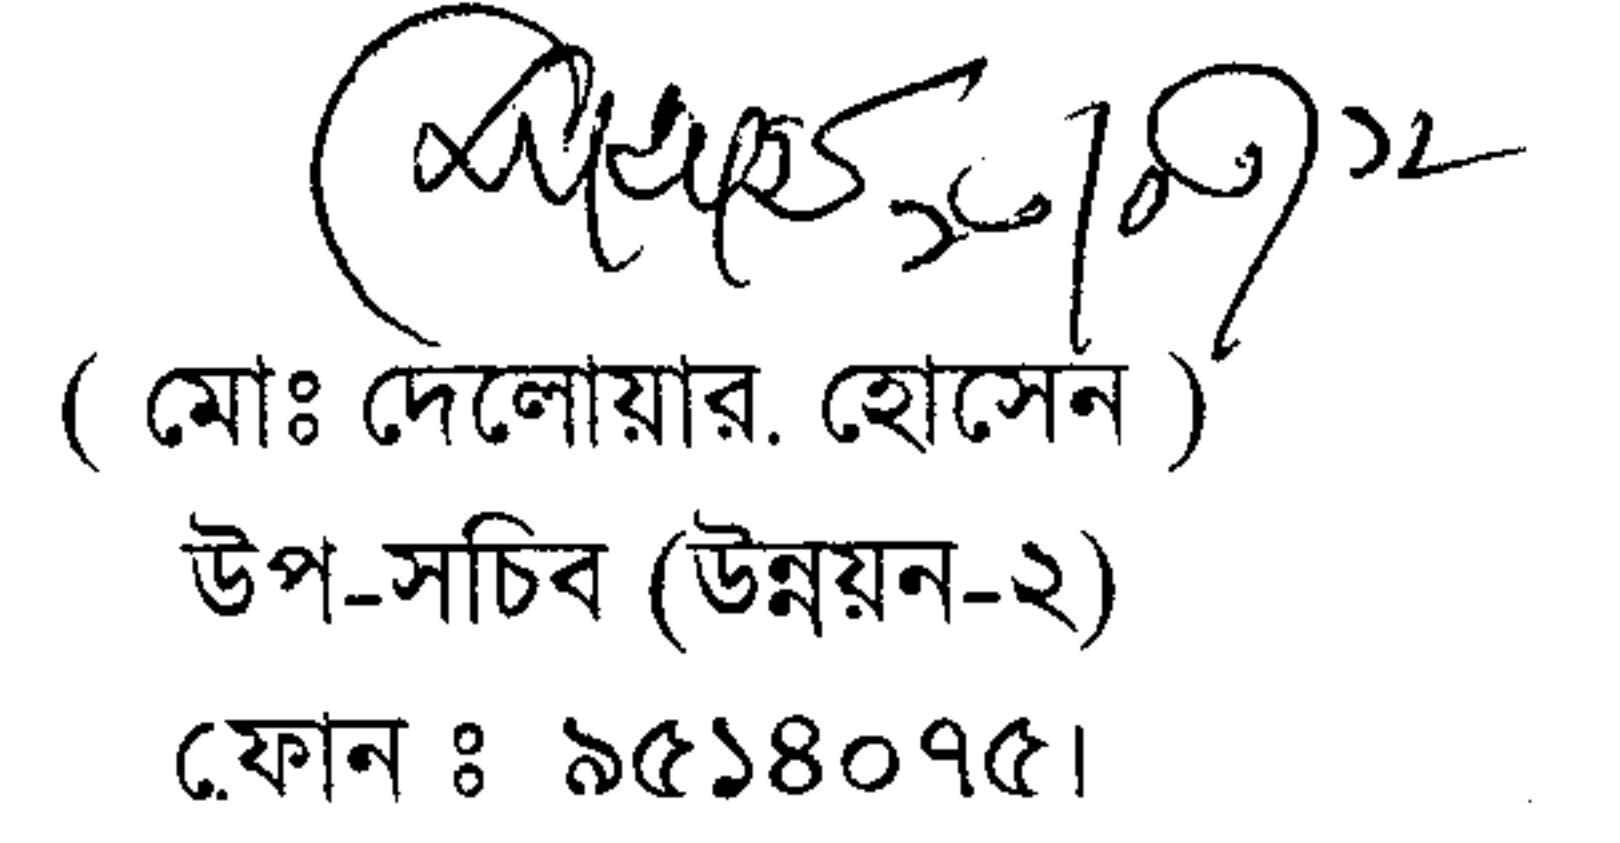 ( মোঃ দেলোয়ার হোসেন )
উপ-সচিব (উন্নয়ন-২)
ফোন ঃ ৯৫১৪০৭৫।